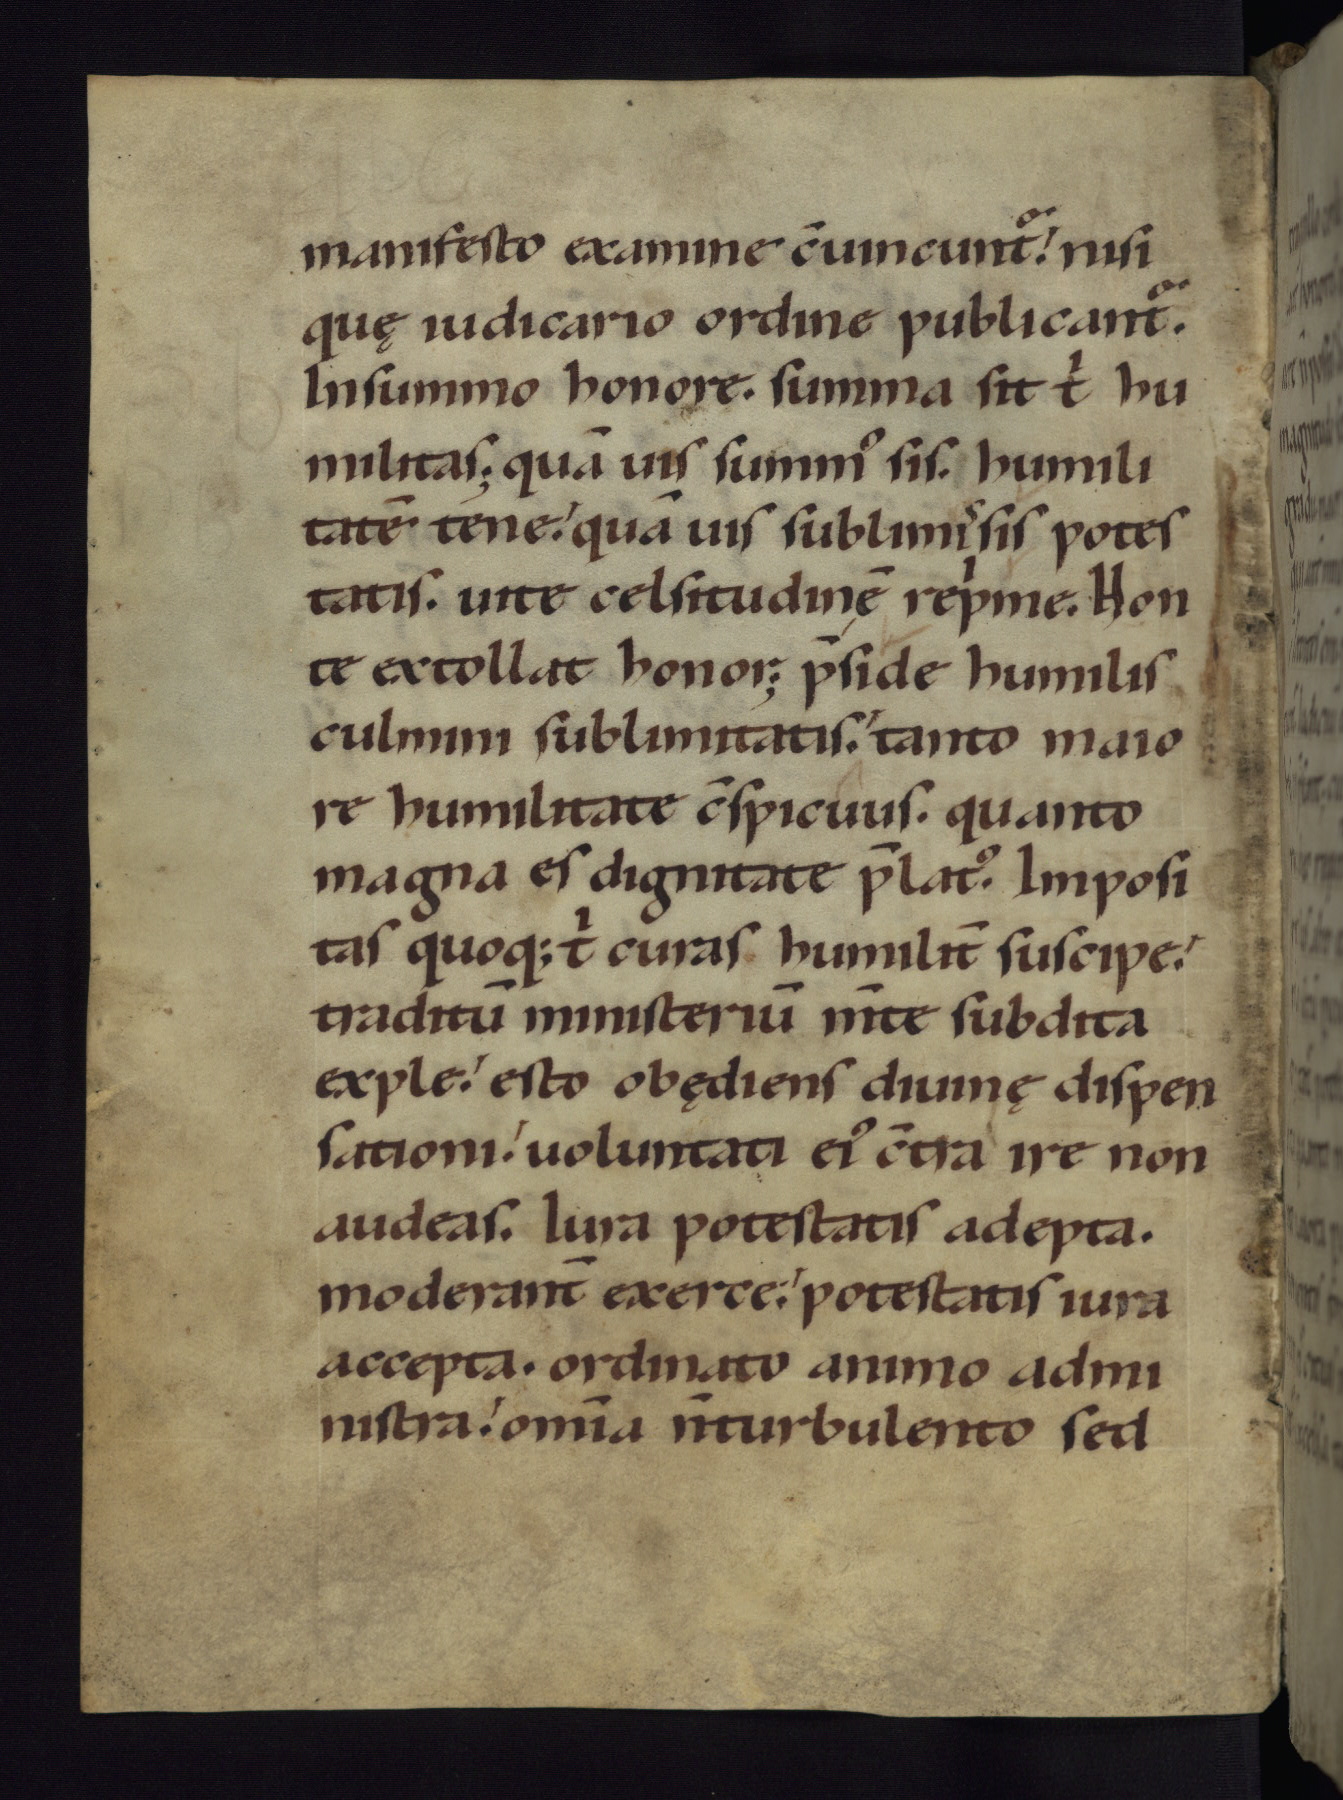 manifesto examine c̄uincunt᷒. nisi
quę iudicario ordine publicant᷒.
Insummo honore. summa sit tͥ hu
militas; quā uis summꝰ sis. humili
tatē tene. quā uis sublimˢ sis potes
tatis. uite celsitudinē rep̍me. Non
te extollat honor; p̄side humilis
culmini sublimitatis. tanto maio
re humilitate c̄spicuus. quanto
magna es dignitate p̄latꝰ. Imposi
tas quoq; tͥ curas humilit̄ suscipe.
traditū ministeriū m̄te subdita
exple. esto obędiens diuinę dispen
sationi. uoluntati eiꝰ c̄tra ire non
audeas. Iura potestatis adepta.
moderant̄ exerce. potestatis iura
accepta. ordinato animo admi
nistra. om̄ia n̄turbulento sed